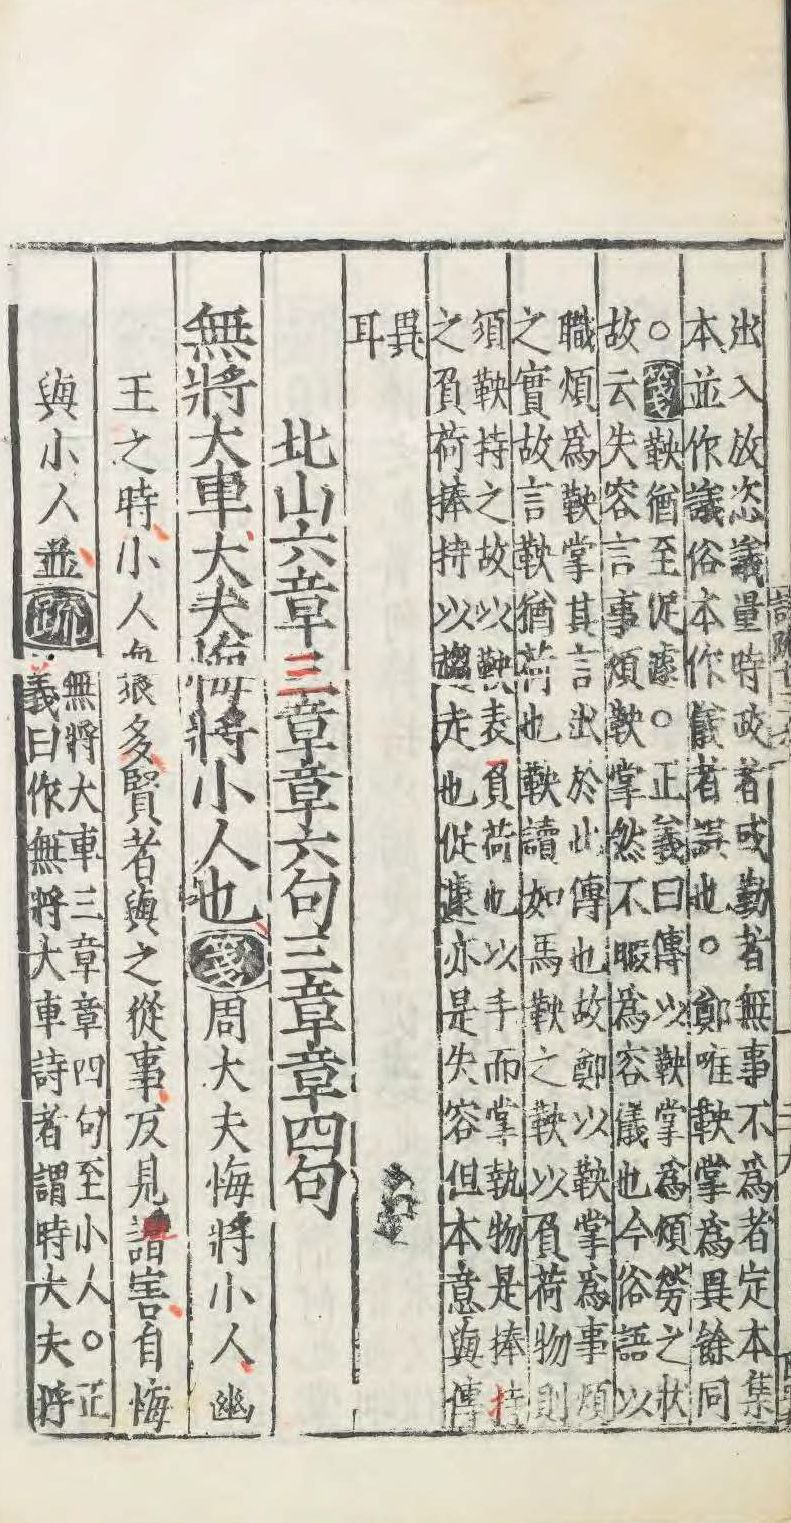 出入放恣議量時政者或勤者無事不為者定本集
本並作議俗本作儀者誤也○鄭唯鞅掌為異餘同
○箋鞅猶至促遽○正義曰傳以鞅掌為煩勞之狀
故云失容言事煩鞅掌然不暇為容儀也今俗語以
職煩為鞅掌其言出於此傳也故鄭以鞅掌為事煩
之實故言鞅猶荷也鞅讀如馬鞅之鞅以負荷物則
須鞅持之故以鞅表負荷也以手而掌執物是捧持
之負荷捧持以趨走也促遽亦是失容但本意與傳
異
耳
北山六章三章章六句三章章四句
無將大車大夫悔將小人也箋周大夫悔將小人幽
王之時小人衆多賢者與之從事反見譖害自悔
與小人並疏
無將大車三章章四句至小人○正
義曰作無將大車詩者謂時大夫將